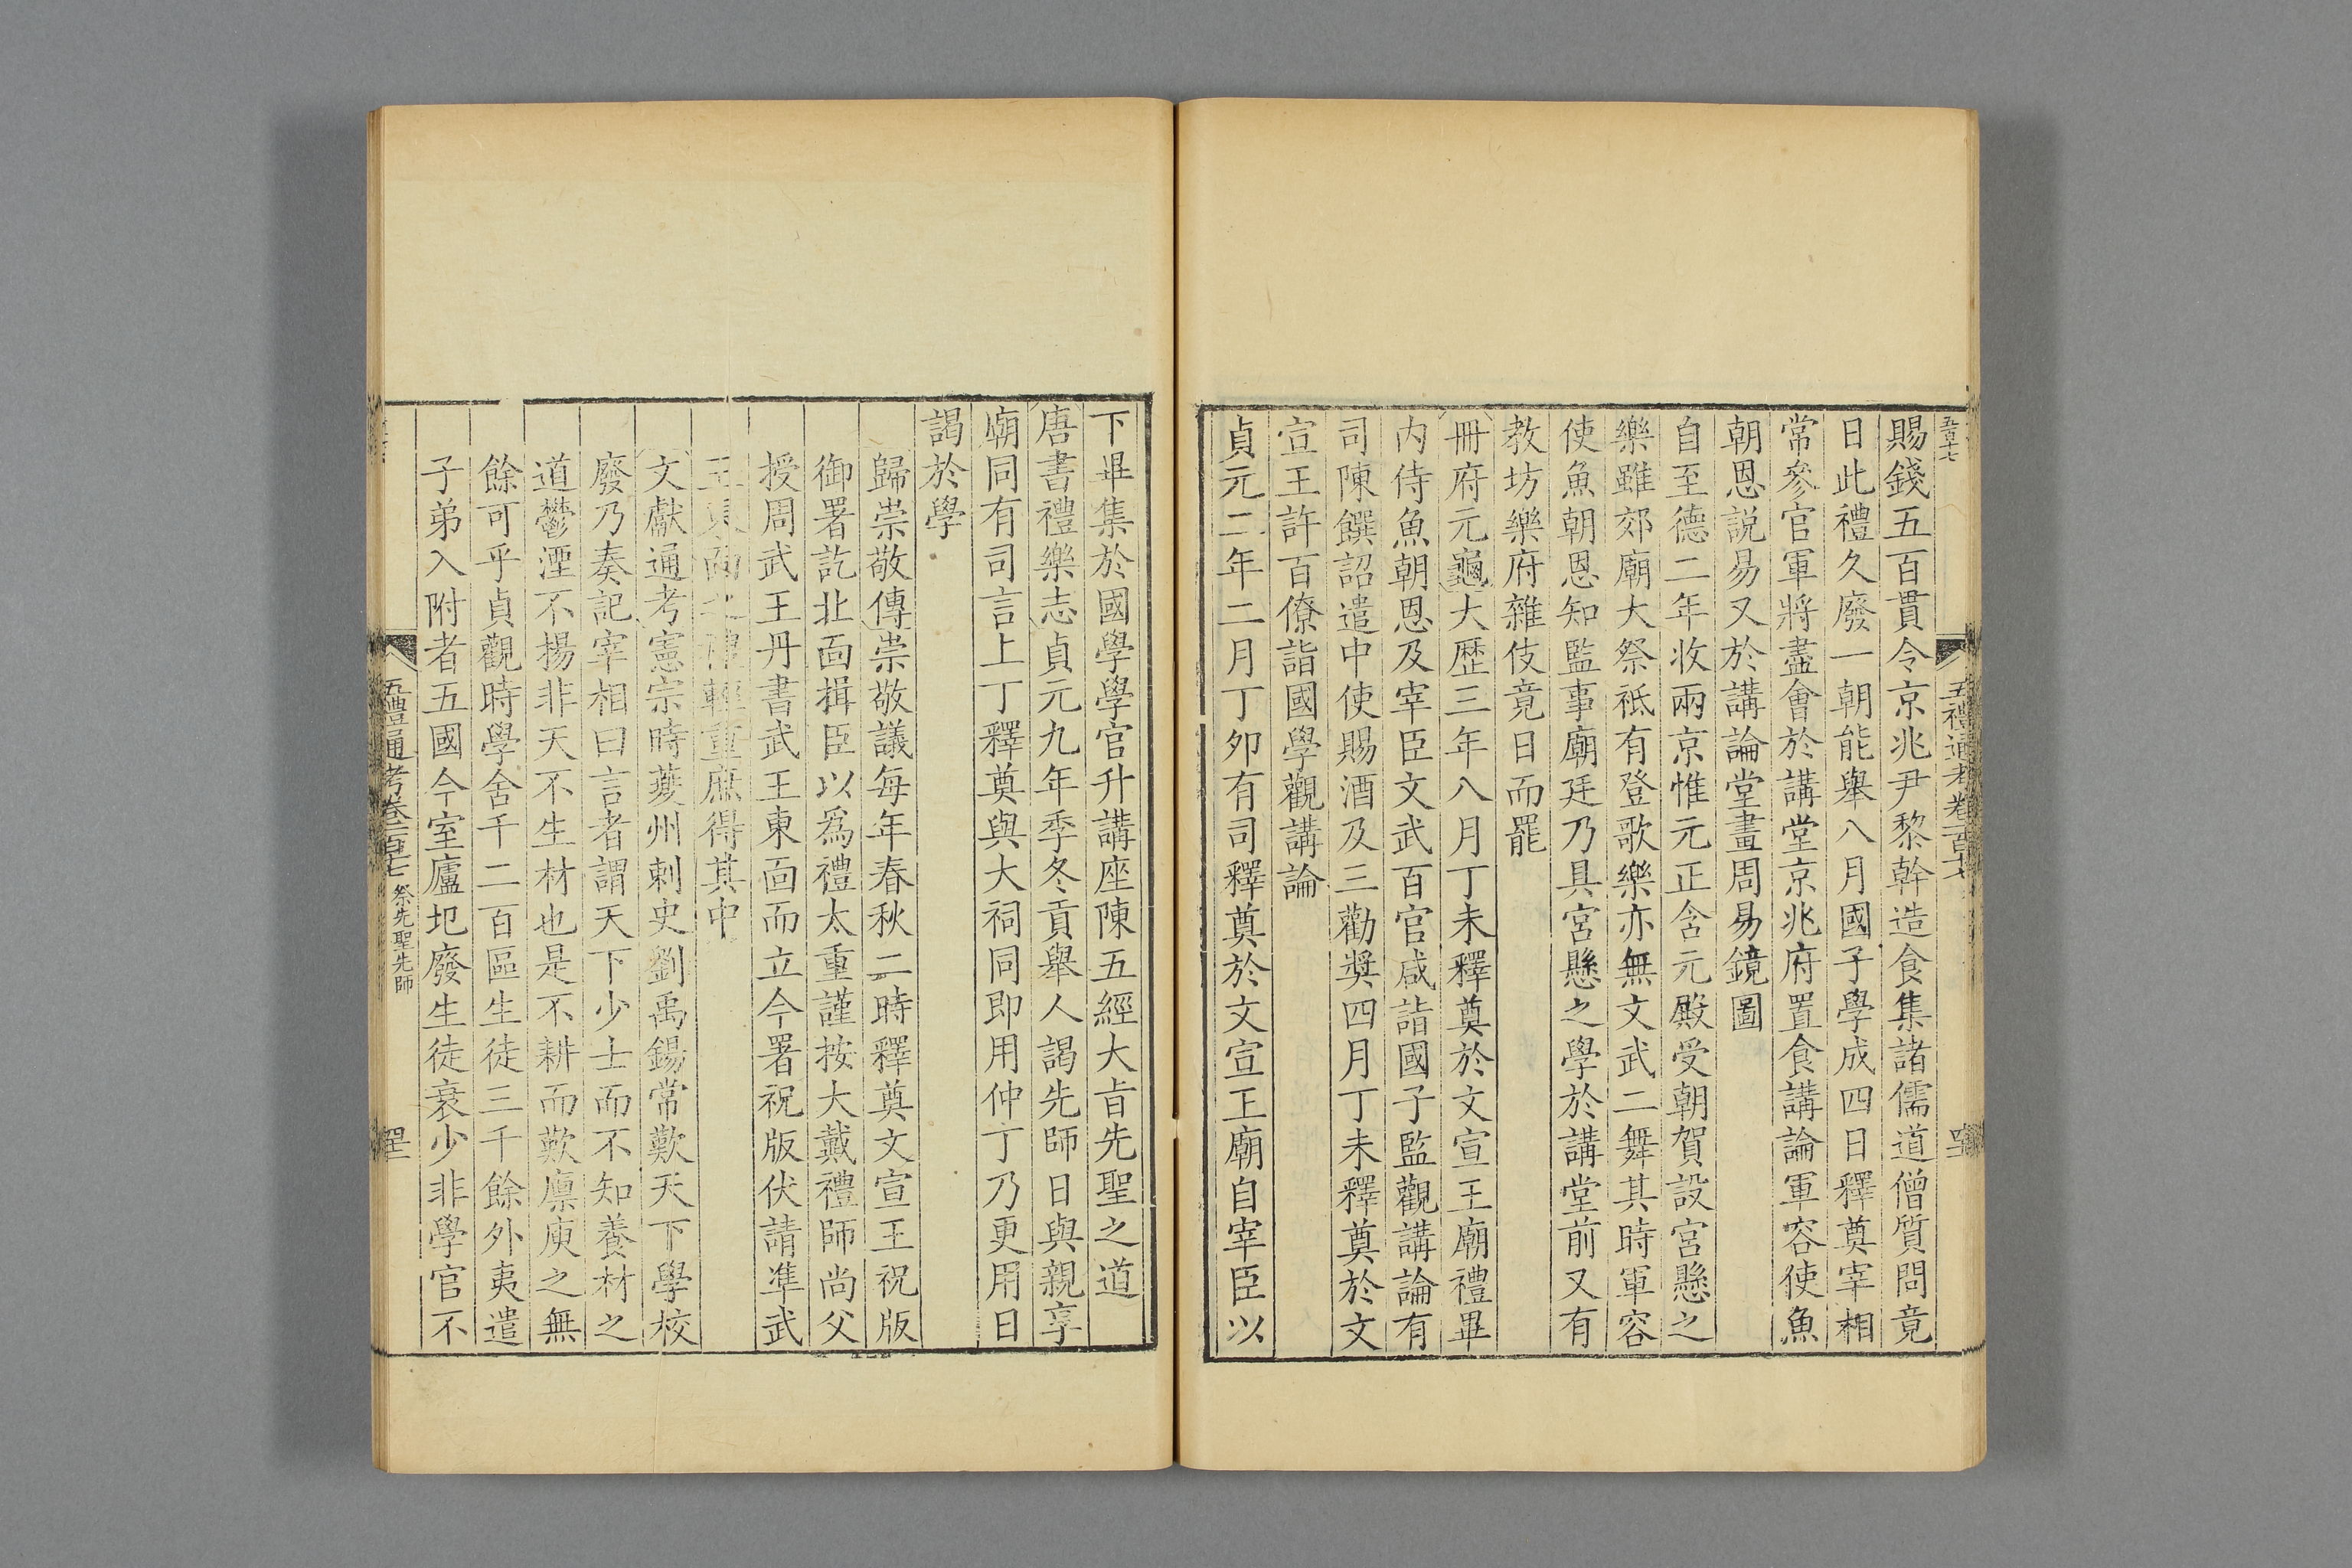 五禮通考卷一百十七
賜錢五百貫令京兆尹黎幹造食集諸儒道僧質問竟
日此禮久廢一朝能舉八月國子學成四日釋奠宰相
常參官軍將盡會於講堂京兆府置食講論軍容使魚
朝恩說易又於講論堂畫周易鏡圖
自至德二年收兩京惟元正含元殿受朝賀設宮懸之
樂雖郊廟大祭祗有登歌樂亦無文武二舞其時軍容
使魚朝恩知監事廟廷乃具宮懸之學於講堂前又有
教坊樂府雜伎竟日而罷
冊府元龜大歷三年八月丁未釋奠於文宣王廟禮畢
内侍魚朝恩及宰臣文武百官咸詣國子監觀講論有
司陳饌詔遣中使賜酒及三勸獎四月丁未釋奠於文
宣王許百僚詣國學觀講論
貞元二年二月丁夘有司釋奠於文宣王廟自宰臣以
下畢集於國學學官升講座陳五經大旨先聖之道
唐書禮樂志貞元九年季冬貢舉人謁先師日與親享
廟同有司言上丁釋奠與大祠同即用仲丁乃更用日
謁於學
歸崇敬傳崇敬議每年春秋二時釋奠文宣王祝版
御署訖北面揖臣以爲禮太重謹按大戴禮師尚父
授周武王丹書武王東面而立今署祝版伏請準武
王東面之禮輕重庶得其中
文獻通考憲宗時夔州刺史劉禹錫常歎天下學校
廢乃奏記宰相曰言者謂天下少士而不知養材之
道鬱湮不揚非天不生材也是不耕而歎廩庾之無
餘可乎貞觀時學舍千二百區生徒三千餘外夷遣
子弟入附者五國今室廬圯廢生徒衰少非學官不
五禮通考卷一百十七 祭先聖先師